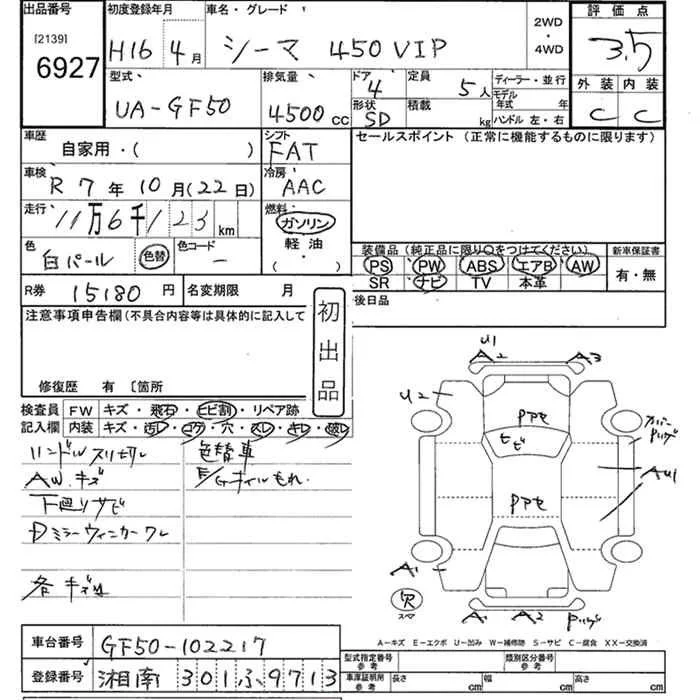 出品番号 初度登録年月 車名・グレード
[2139]
6927
H16 4月 シーマ 450VIP
2WD
・
4WD
評価点
3.5
外装 内装
C C
型式 排気量 ドア 定員 ディーラー・並行
UA-GF50 4500cc 4 5人 モデル
年式 年
形状 積載 ハンドル 左・右
SD kg
車歴 シフト セールスポイント (正常に機能するものに限ります)
自家用・( ) FAT
車検 冷房
R7年10月(22日) AAC
走行 燃料
11万6千123km ガソリン
軽油
( )
色 色コード
白パール 色替 ー
装備品 (純正品に限り○をつけてください) 新車保証書
PS PW ABS エアB AW 有・無
SR ナビ TV 本革
R券 15180円 名変期限 月
後日品
注意事項申告欄 (不具合内容等は具体的に記入して
初出品
修復歴 有 〔箇所
検査員 FW キズ・飛石・ヒビ割・リペア跡
記入欄 内装 キズ・汚レ・コゲ・穴・スレ・キレ・破レ
ハンドルスリ切レ 色替車
AW.キズ E/Gオイルもれ.
下廻リサビ
Dミラーウィンカーワレ
各キズ凹
U1
A2 A3
U2
Pアセ
ヒビ
カバー
Pハゲ
AU1
Pアセ
A1
欠
スペア
A1 A2 Pハゲ
A-キズ E-エクボ U-凹み W-補修跡 S-サビ C-腐食 XX-交換済
車台番号 GF50-102217
型式指定番号 類別区分番号
参考 参考
登録番号 湘南301ふ9713
車庫証明用 長さ 幅 高さ
参考 cm cm cm